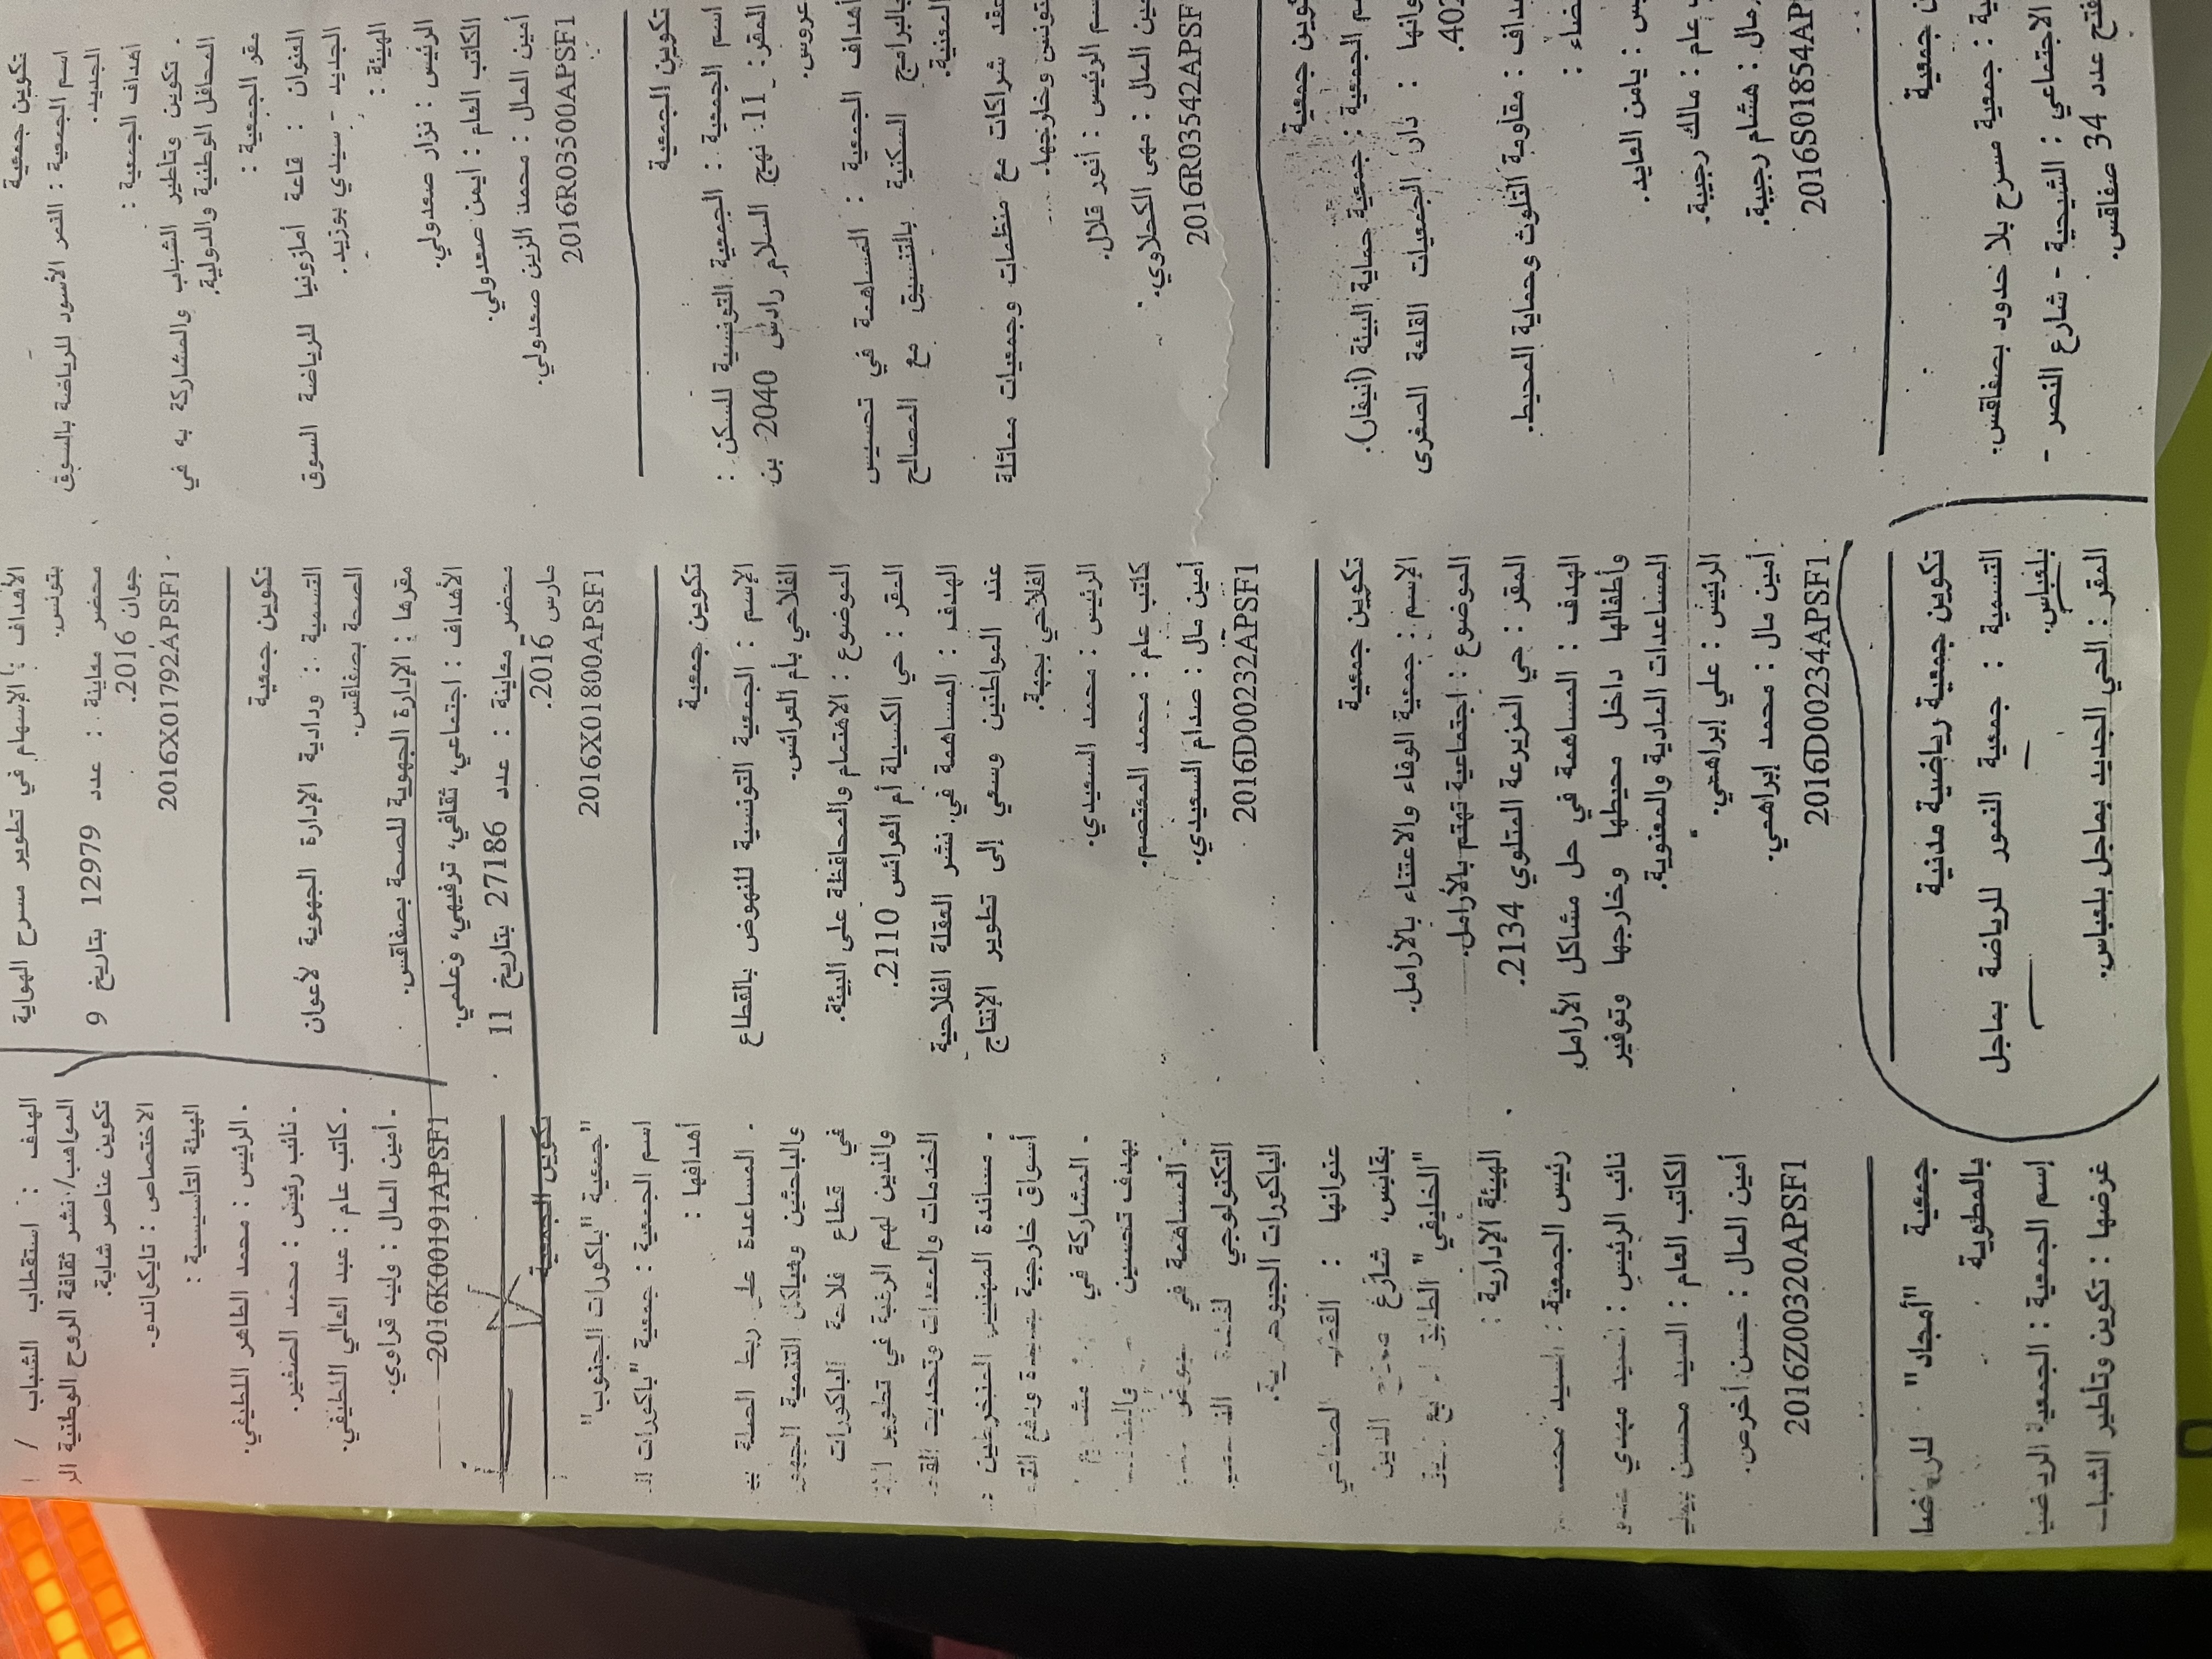 تكوين جمعية
اسم الجمعية : النمر الأسود للرياضة بالسوق
الجديد.
أهداف الجمعية :
- تكوين وتأطير الشباب والمشاركة به في
المحافل الوطنية والدولية.
مقر الجمعية :
العنوان : قاعة أمازونيا للرياضة السوق
الجديد - سيدي بوزيد.
الهيئة :
الرئيس : نزار صعدولي.
الكاتب العام : ايمن صعدولي.
أمين المال : محمد الزين صعدولي.
2016R03500APSF1
تكوين الجمعية
اسم الجمعية : الجمعية التونسية للسكن :
المقر : 11 نهج السلام رادس 2040 بن
عروس.
أهداف الجمعية : المساهمة في تحسيس
بالبرامج السكنية بالتنسيق مع المصالح
المعنية.
عقد شراكات مع منظمات وجمعيات مماثلة
بتونس وخارجها.
اسم الرئيس : أنور قلال.
أمين المال : مهى الكحلاوي.
2016R03542APSF
تكوين جمعية
اسم الجمعية : جمعية حماية البيئة (أنيفار).
عنوانها : دار الجمعيات القلعة الصغرى
402.
أهداف : مقاومة التلوث وحماية المحيط.
الأعضاء :
الرئيس : يامن العايد.
كاتب عام : مالك رجيبة.
أمين مال : هشام رجيبة.
2016S01854AP
تكوين جمعية
التسمية : جمعية مسرح بلا حدود بصفاقس.
الاجتماعي : الشيحية - شارع النصر -
فتح عدد 34 صفاقس.
الأهداف : الإسهام في تطوير مسرح الهواية
بتونس.
محضر معاينة : عدد 12979 بتاريخ 9
جوان 2016.
2016X01792APSF1
تكوين جمعية
التسمية : ودادية الإدارة الجهوية لأعوان
الصحة بصفاقس.
مقرها : الإدارة الجهوية للصحة بصفاقس.
الأهداف : اجتماعي، ثقافي، ترفيهي، وعلمي.
محضر معاينة : عدد 27186 بتاريخ 11
مارس 2016.
2016X01800APSF1
تكوين جمعية
الإسم : الجمعية التونسية للنهوض بالقطاع
الفلاحي بأم العرائس.
الموضوع : الاهتمام والمحافظة على البيئة.
المقر : حي الكسيلة أم العرائس 2110.
الهدف : المساهمة في نشر العقلة الفلاحية
عند المواطنين وسعي إلى تطوير الإنتاج
الفلاحي بجهة.
الرئيس : محمد السعيدي.
كاتب عام : محمد المعتصم.
أمين مال : صدام السعيدي.
2016D00232APSF1
تكوين جمعية
الإسم : جمعية الوفاء والاعتناء بالأرامل.
الموضوع : اجتماعية تهتم بالأرامل.
المقر : حي المزيرعة المتلوي 2134.
الهدف : المساهمة في حل مشاكل الأرامل
وأطفالها داخل محيطها وخارجها وتوفير
المساعدات المادية والمعنوية.
الرئيس : علي إبراهمي.
أمين مال : محمد إبراهمي.
2016D00234APSF1
تكوين جمعية رياضية مدنية
التسمية : جمعية النمور للرياضة بماجل
بلعباس.
المقر : الحي الجديد بماجل بلعباس.
الهدف : استقطاب الشباب /
المواهب/ نشر ثقافة الروح الوطنية
تكوين عناصر شابة.
الاختصاص : تايكواندو.
الهيئة التأسيسية :
- الرئيس : محمد الطاهر اللطيفي.
- نائب رئيس : محمد الصغير.
- كاتب عام : عبد العالي اللطيفي.
- أمين المال : وليد قراوي.
2016K00191APSF1
تكوين الجمعية
جمعية "باكورات الجنوب"
اسم الجمعية : جمعية "باكورات
أهدافها :
- المساعدة على ربط الصلة
والباحثين وهياكل التنمية
في قطاع فلاحة الباكورات
والذين لهم الرغبة في تطوير
الخدمات والمعدات وتحديث
- مساندة المهنيين المنخرطين
أسواق خارجية جديدة ودفع
- المشاركة في
بهدف تحسين
- المساهمة في
التكنولوجي
الباكورات الجيوحرارية.
عنوانها : القطب الصناعي
بقابس، شارع صلاح الدين
"الخليفي" الطابق
الهيئة الإدارية :
رئيس الجمعية : السيد محمد
نائب الرئيس : السيد مهدي
الكاتب العام : السيد محسن
أمين المال : حسن أخرص.
2016Z00320APSF1
جمعية "أمجاد"
بالمطوية
إسم الجمعية : الجمعية
غرضها : تكوين وتأطير الشباب